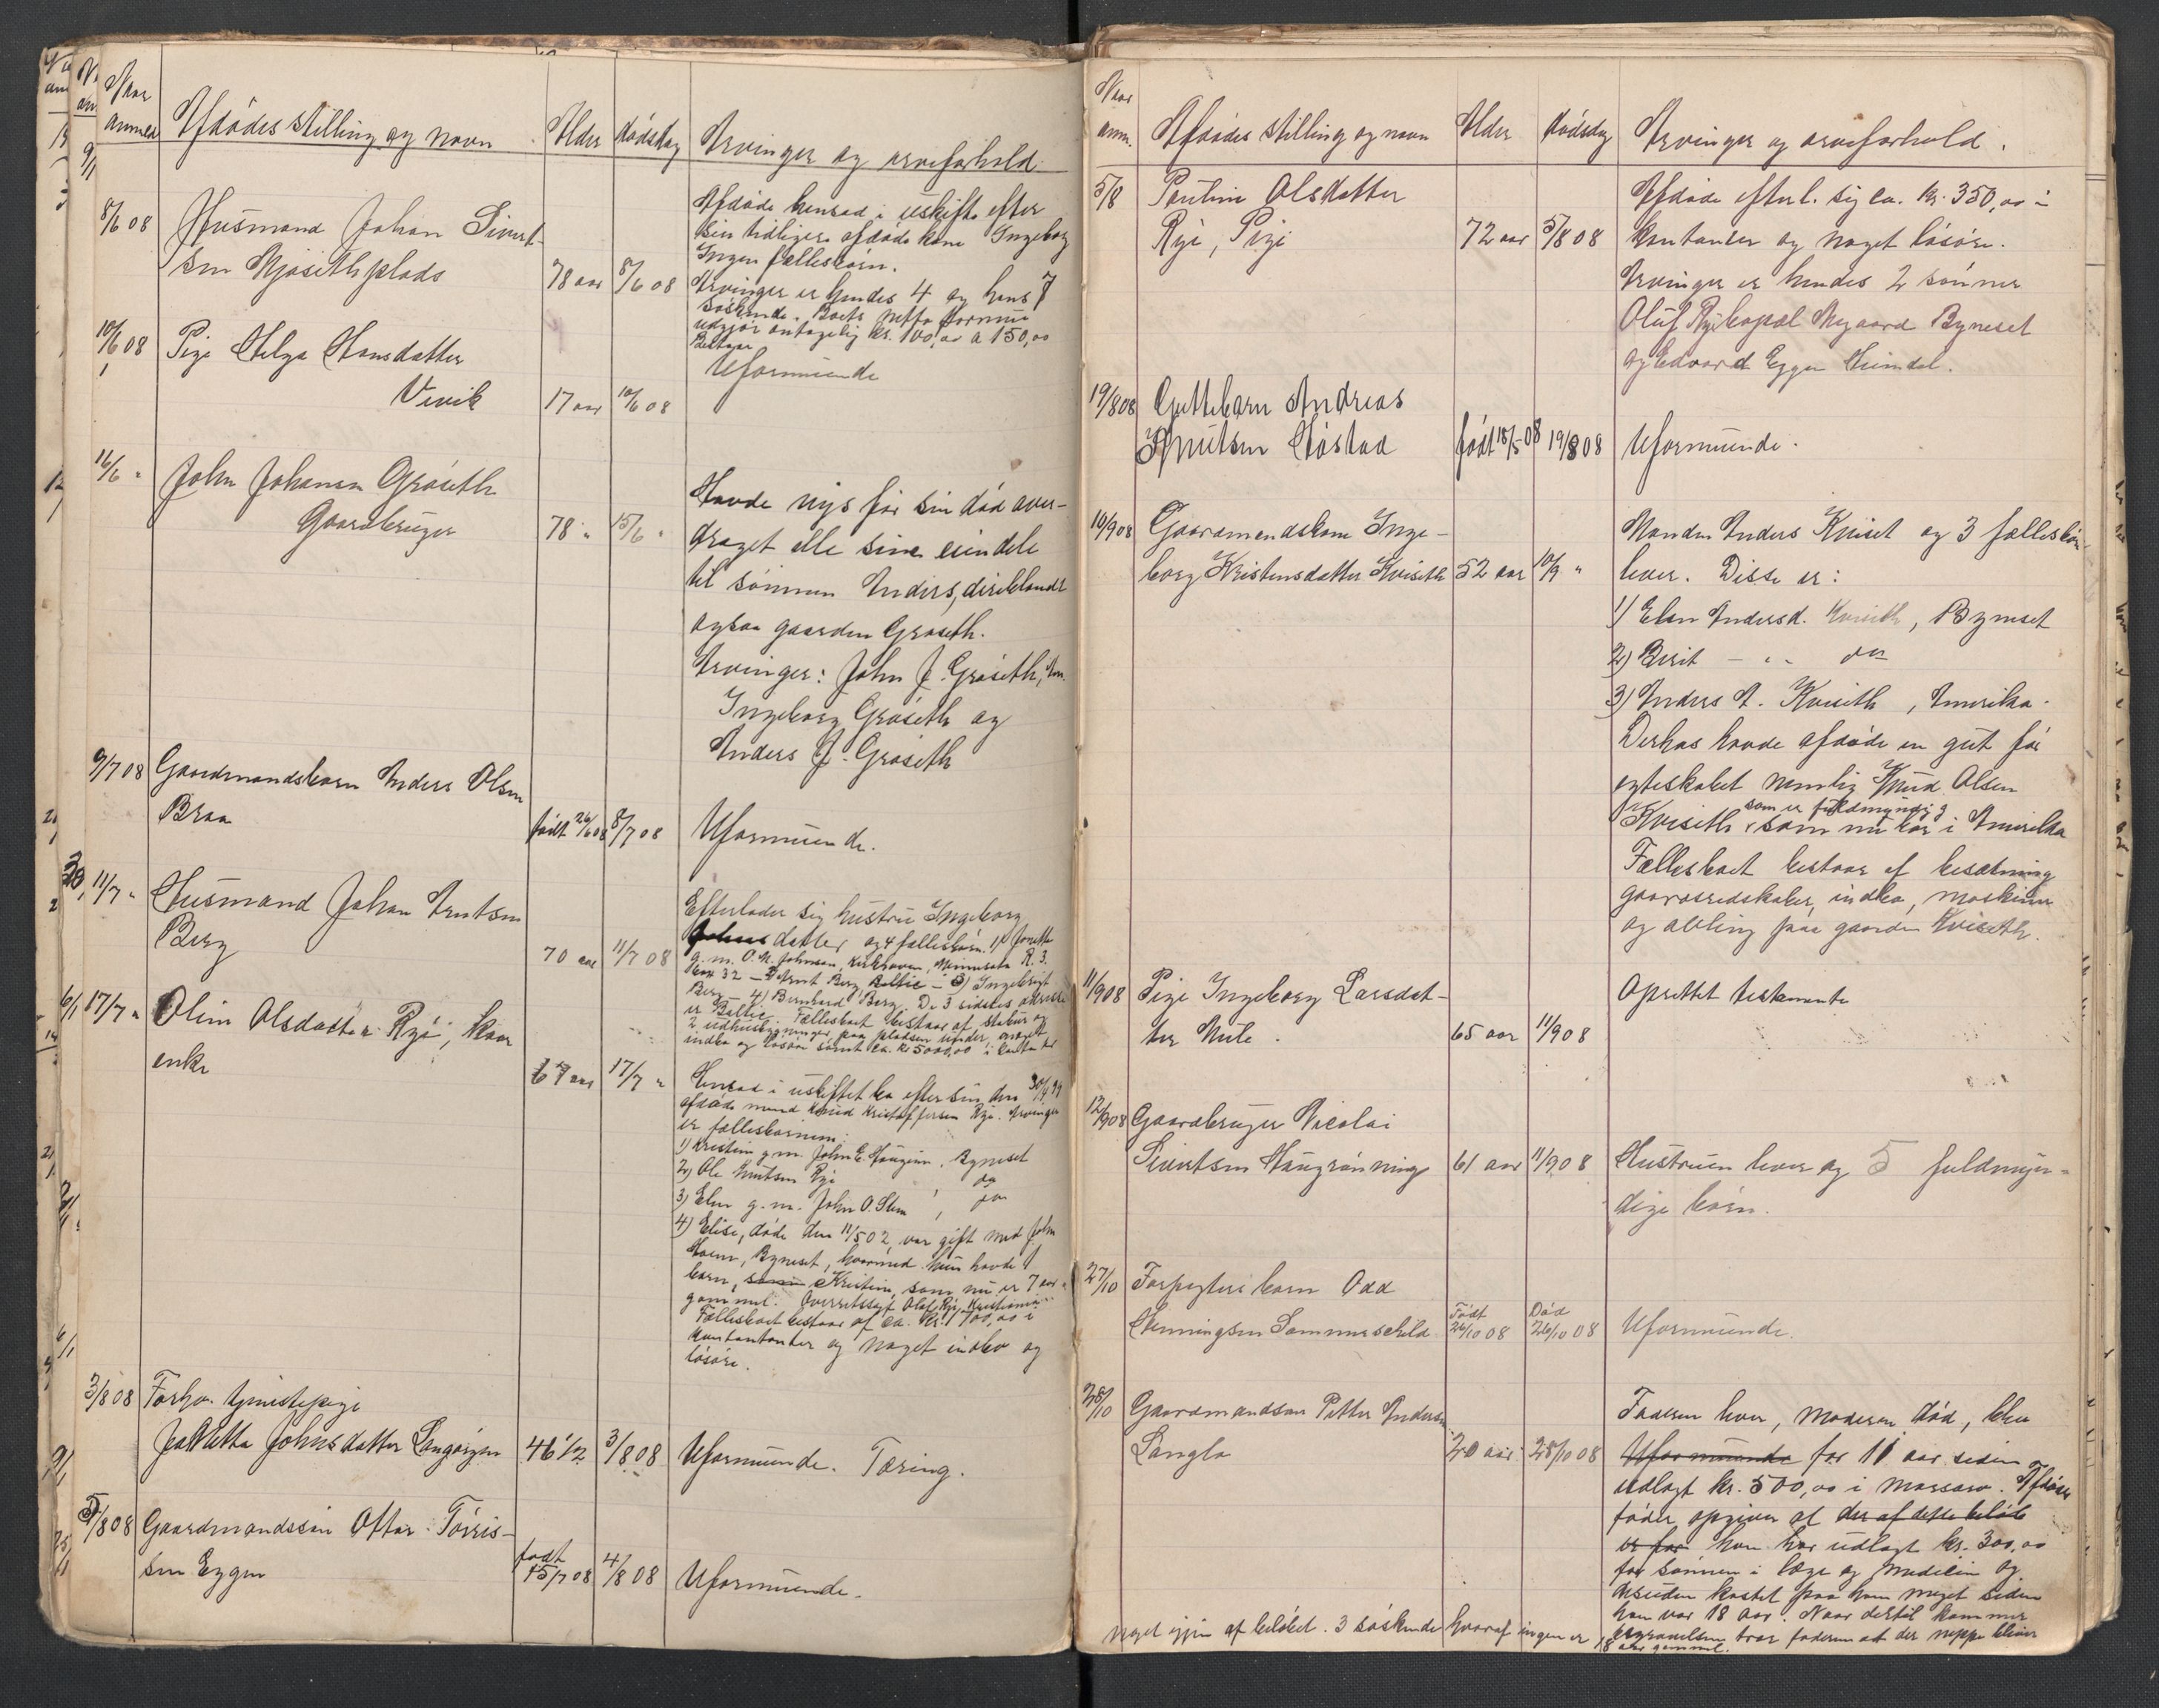 Naar
anmeld
Afdødes stilling og navn
Alder
dødsdag
Arvinger og arveforhold.
8/6 08
Husmand Johan Sivert-
sen Mjøsethplads
78 aar
8/6 08
Afdøde hensad i uskifte efter
sin tidligere afdøde kone Ingeborg
Ingen fællesbørn.
Arvinger er hendes 4 og hans 7
søskende. Boets netto formue
udgjør antagelig kr. 100,00 a 150,00
10/6 08
Pige Helga Hansdatter
Vevik
17 aar
10/6 08
Uformuende
16/6 "
John Johansen Grøseth
Gaardbruger
78 "
15/6 "
Havde nys før sin død over-
draget alle sine eiendele
til sønnen Anders, deriblandt
ogsaa gaarden Grøseth.
Arvinger: John J. Grøseth, Am.
Ingeborg Grøseth og
Anders J. Grøseth
9/7 08
Gaardmandsbarn Anders Olsen
Braa
født 26/6 08
8/7 08
Uformuende.
11/7 "
Husmand Johan Arntsen
Berg
70 aar
11/7 08
Efterlader sig hustru Ingeborg
datter og 4 fællesbørn. 1) Jonetta
g. m. O. N. Johnson, Kirkhoven, Minnesota R. 3.
Box 32 – 2) Arnt Berg Baltic – 3) Ingebrigt
Berg – 4) Bernhard Berg. De 3 sidstes adresse
er Baltic. Fællesboet bestaar af stabur og
2 udhusbygninger paa pladsen under, noget
indbo og løsøre samt ca. kr 5000,00 i kontanter
17/7 "
Oline Olsdatter Rye, kaar
enke
67 aar
17/7 "
Hensad i uskiftet bo efter sin den 30/4 99
afdøde mand Knud Kristoffersen Rye. Arvinger
er fællesbørnene:
1) Kristine g. m. John E. Haugum, Byneset
2) Ole Knutsen Rye do
3) Elen g. m. John O. Stem, do
4) Elise, døde den 11/5 02, var gift med John
Hoem, Byneset, hvormed hun havde 1
barn, Kristine, som nu er 7 aar
gammel. Overretssagf. Olaf Rye, Kristiania
Fællesboet bestaar af ca. kr. 1700,00 i
kontantanter og noget indbo og
løsøre.
3/8 08
Forhv. tjenestepige
Jonetta Johnsdatter Langørgen
46 1/2
3/8 08
Uformuende. Tæring.
5/8 08
Gaardmandssøn Ottar Tørris-
sen Eggen
født
15/7 08
4/8 08
Uformuende.
Naar
anm.
Afdødes stilling og navn
Alder
dødsdag
Arvinger og arveforhold.
5/8
Pauline Olsdatter
Rye, Pige
72 aar
5/8 08
Afdøde efterl. sig ca. kr. 350,00 i
kontanter og noget løsøre.
Arvinger er hendes 2 sønner
Oluf Ryekapal Nygaard Byneset
og Edvard Eggen Leinstd.
19/8 08
Guttebarn Andreas
Knutsen Høstad
født 18/5 08
19/8 08
Uformuende.
10/9 08
Gaardmandskone Inge-
borg Kristensdatter Kviseth
52 aar
10/9 "
Manden Anders Kviset og 3 fællesbørn
lever. Disse er:
1) Elen Andersd. Kviseth, Byneset
2) Berit – " – do
3) Anders A. Kviseth, Amerika.
Derhos havde afdøde en gut før
egteskabet nemlig Knud Olsen
som er fuldmyndig
Kviseth, som nu bor i Amerika
Fællesboet bestaar af besætning
gaardsredskaber, indbo, maskiner
og avling paa gaarden Kviseth.
11/9 08
Pige Ingeborg Larsdat-
ter Mule.
65 aar
11/9 08
Oprettet testamente
12/9 08
Gaardbruger Nicolai
Sivertsen Haugrønning
61 aar
11/9 08
Hustruen lever og 5 fuldmyn-
dige børn.
27/10
Forpagters barn Odd
Henningsen Sommerschild
Født
26/10 08
Død
26/10 08
Uformuende.
28/10
Gaardmandssøn Petter Andersen
Langlo
20 aar
28/10 08
Faderen lever, moderen død, blev
Uformuende for 11 aar siden
udlagt kr. 500,00 i morsarv. Afdødes
fader opgiver at der af dette beløb
er for han har udlagt kr. 300,00
for sønnen i læge og medicin og
desuden kostet paa ham meget siden
han var 18 aar. Naar dertil kommer
begravelsen tror faderen at der neppe bliver
noget igjen af beløbet. 3 søskende hvoraf ingen er 18 aar gammel.